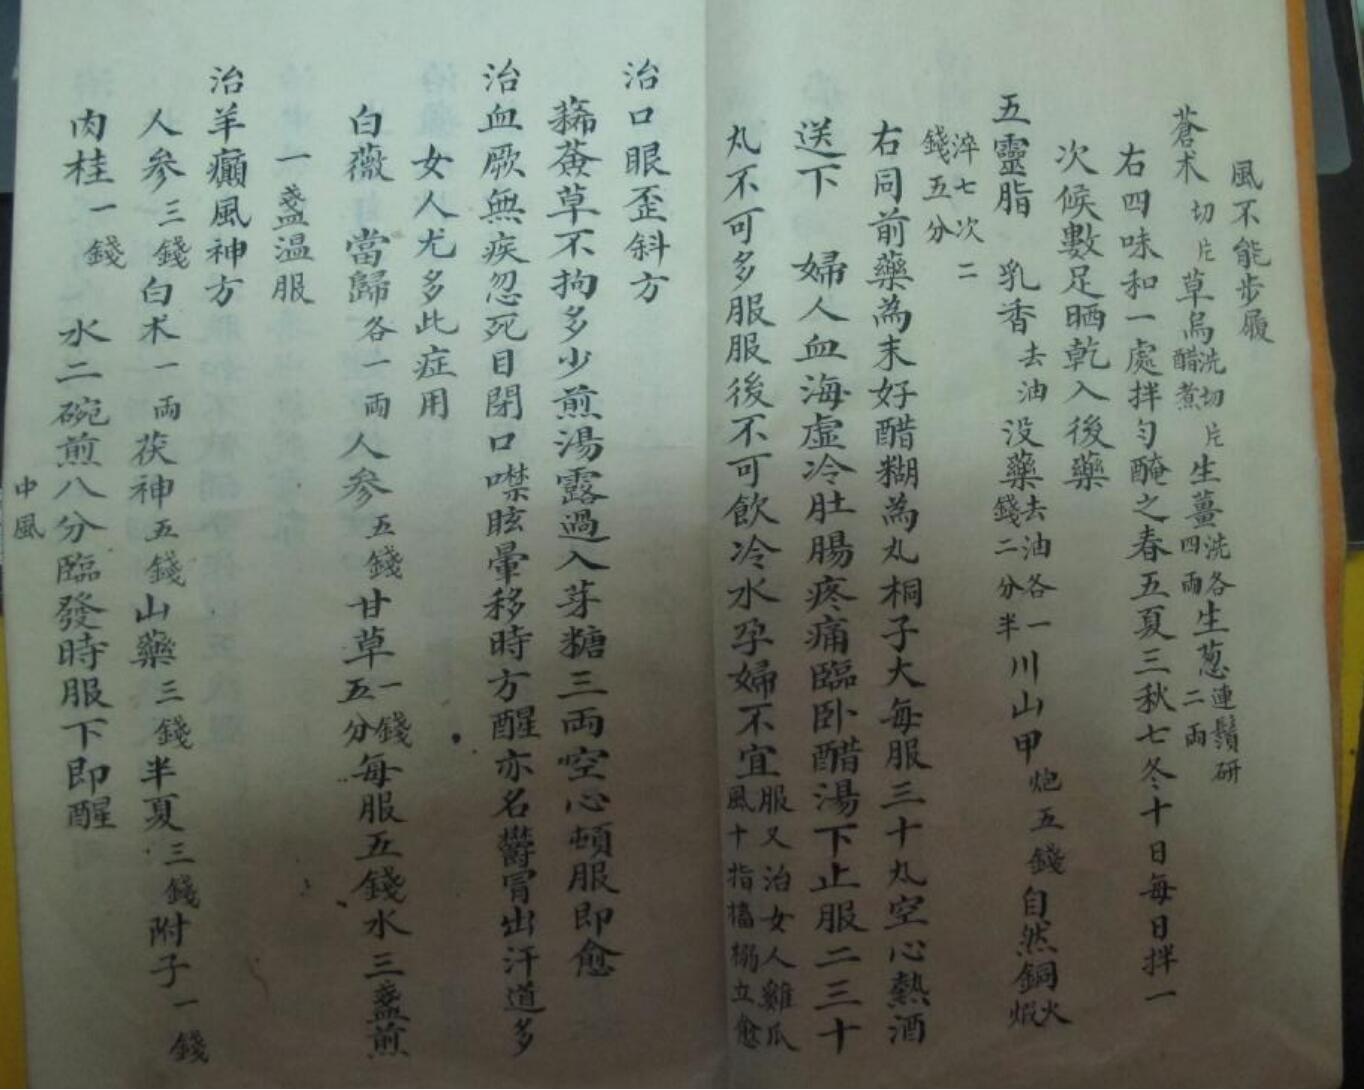 風不能步履
蒼术切片草烏洗切片醋煮生薑洗各四兩生葱連鬚研二兩
右四味和一處拌匀醃之春五夏三秋七冬十日每日拌一
次候數足晒乾入後藥
五靈脂 乳香去油没藥去油各一錢二分半川山甲炮五錢自然銅火煆
淬七次二錢五分
右同前藥為末好醋糊為丸桐子大每服三十丸空心熱酒
送下 婦人血海虚冷肚腸疼痛臨卧醋湯下止服二三十
丸不可多服服後不可飲冷水孕婦不宜服又治女人雞爪風十指搐搦立愈
治口眼歪斜方
豨薟草不拘多少煎湯露過入芽糖三兩空心頓服即愈
治血厥無疾忽死目閉口噤眩暈移時方醒亦名鬱冒出汗道多
女人尤多此症用
白薇 當歸各一兩人參五錢甘草一錢五分每服五錢水三盞煎
一盞温服
治羊癲風神方
人參三錢白术一兩茯神五錢山藥三錢半夏三錢附子一錢
肉桂一錢 水二碗煎八分臨發時服下即醒
中風